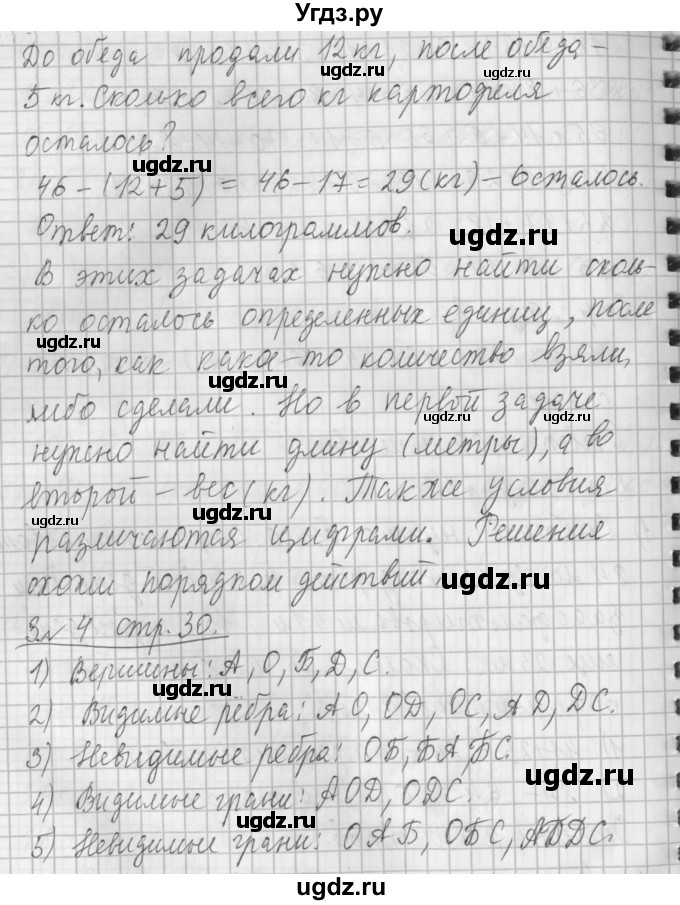 Угдз.ру
До обеда продали 12 кг, после обеда –
5 кг. Сколько всего кг картофеля
осталось?
ugdz.ru
ugdz.ru
46 – (12 + 5) = 46 – 17 = 29 (кг) – осталось.
Ответ: 29 килограммов.
ugdz.ru
В этих задачах нужно найти сколь-
ко осталось определенных единиц, после
ugdz.ru
того, как какое-то количество взяли,
либо сделали. Но в первой задаче
ugdz.ru
нужно найти длину (метры), а во
второй – вес (кг). Также условия
ugdz.ru
различаются цифрами. Решения
охожи порядком действий.
ugdz.ru
З№ 4 стр. 30.
1) Вершины: А, О, Б, Д, С.
ugdz.ru
2) Видимые рёбра: АО, ОД, ОС, АД, ДС.
3) Невидимые ребра: ОБ, БА, БС.
ugdz.ru
4) Видимые грани: АОД, ОДС.
ugdz.ru
5) Невидимые грани: ОАБ, ОБС, АБДС.
ugdz.ru